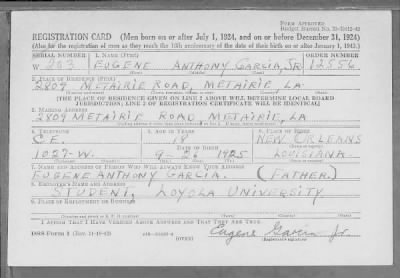 FORM APPROVED
REGISTRATION CARD (Men born on or after July 1, 1924, and on or before December 31, 1924)
(Also for the registration of men as they reach the 18th anniversary of the date of their birth on or after January 1, 1943.)
SERIAL NUMBER 1. NAME (Print) ORDER NUMBER
W 283 EUGENE ANTHONY GARCIA, JR. 12556
2. PLACE OF RESIDENCE (Print)
2809 METAIRIE ROAD, METAIRIE LA
[THE PLACE OF RESIDENCE GIVEN ON LINE 2 ABOVE WILL DETERMINE LOCAL BOARD
JURISDICTION; LINE 2 OF REGISTRATION CERTIFICATE WILL BE IDENTICAL]
3. MAILING ADDRESS
2809 METAIRIE ROAD METAIRIE, LA
4. TELEPHONE 5. AGE IN YEARS 6. PLACE OF BIRTH
CE. 18 NEW ORLEANS
DATE OF BIRTH
1027-W. 9-26 1925 LOUISIANA
7. NAME AND ADDRESS OF PERSON WHO WILL ALWAYS KNOW YOUR ADDRESS
EUGENE ANTHONY GARCIA. (FATHER.)
8. EMPLOYER'S NAME AND ADDRESS
STUDENT, LOYOLA UNIVERSITY
9. PLACE OF EMPLOYMENT OR BUSINESS
I AFFIRM THAT I HAVE VERIFIED ABOVE ANSWERS AND THAT THEY ARE TRUE.
DSS Form 1 (OVER)
Eugene Garcia Jr.
(Registrant's signature)